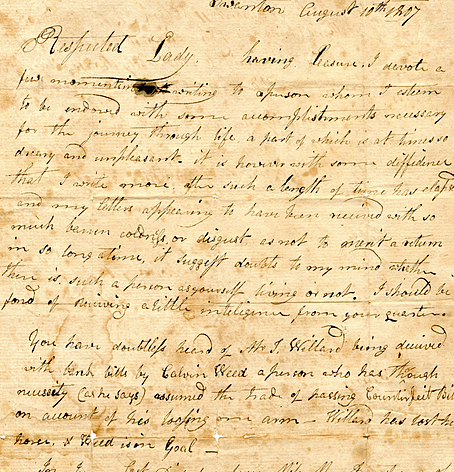 Swanton August 10th 1807
Respected Lady, having leasure, I devote a
few moments in writing to a person whom I esteem
to be endowed with some accomplishments necessary
for the journey through life a part of which is at times so
dreary and unpleasant. it is however with some diffidence
that I write more, after such a length of time has elapsed
and my letters appearing to have been received with so
much barren coldness, or disgust as not to merit a return
in so long a time, it suggest doubts to my mind whether
there is, such a person as yourself living or not. I should be
fond of receiving a little inteligence from your quarter.
You have doubtless heard of Mr. J. Willard being deceived
with Bank bills by Calvin Weed a person who has through
necessity (as he says) assumed the trade of passing Counterfeit bills
on account of his loosing one arm — Willard has lost his
horse, & Weed is in Goal —